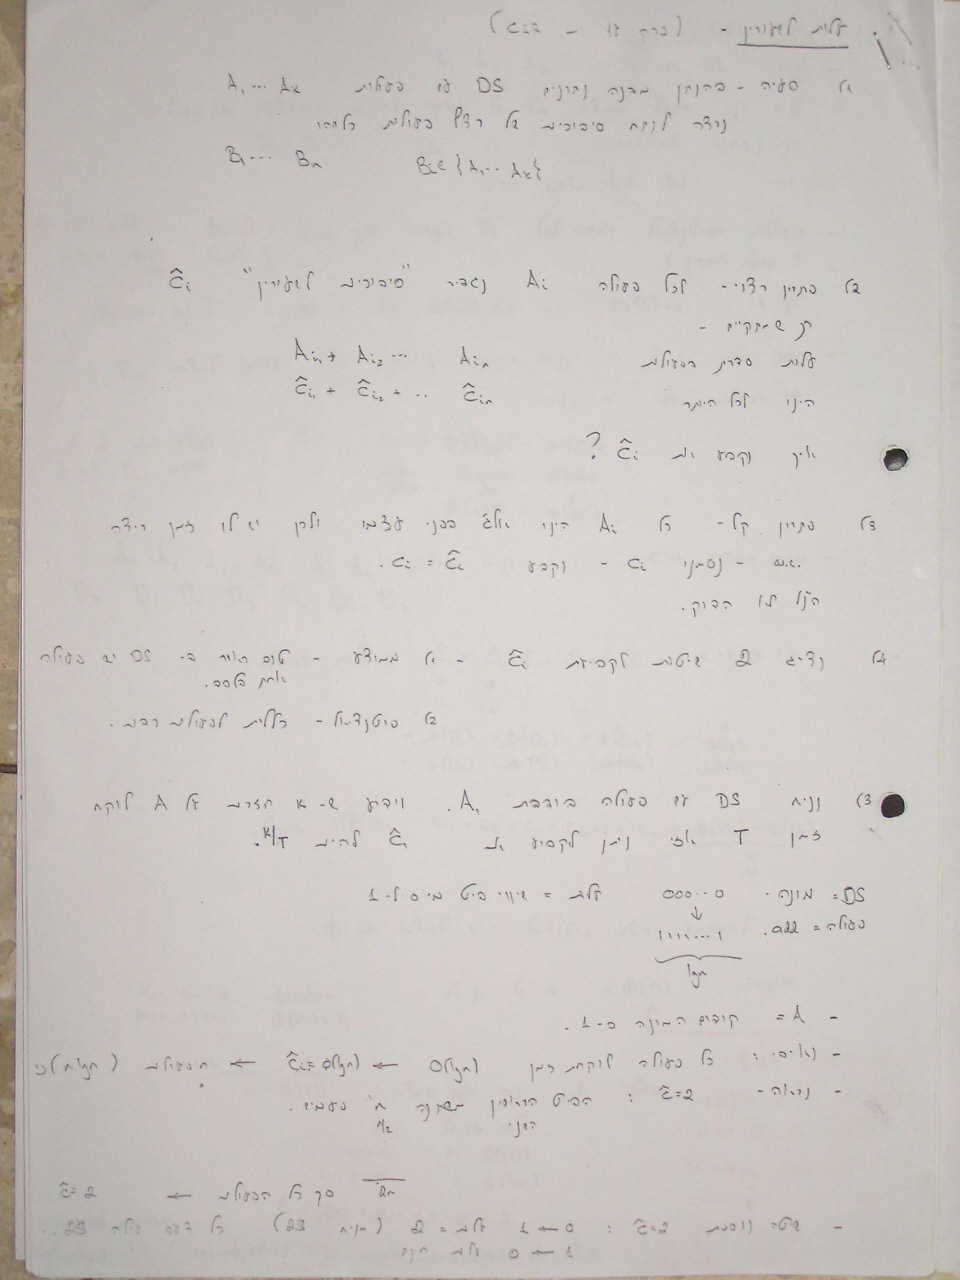 עלות לשיעורין - (פרק 17 - CLR)
1) בעיה - בהנתן מבנה נתונים DS עם פעולות A₁ ... Aₖ
נרצה לנתח סיבוכיות של רצף פעולות כלשהו
B₁ ... Bₙ Bᵢ∈{A₁ ... Aₖ}
2) פתרון רצוי - לכל פעולה Aᵢ נגדיר "סיבוכיות לשיעורין" ĉᵢ
כך שמתקיים -
עלות סדרת הפעולות Aᵢ₁ + Aᵢ₂ ... Aᵢₙ
הינו לכל היותר ĉᵢ₁ + ĉᵢ₂ + .. ĉᵢₙ
איך נקבע את ĉᵢ ?
3) פתרון קל - כל Aᵢ הינו אלג' בפני עצמו ולכן יש לו זמן ריצה
w.c. - נסמנו cᵢ - ונקבע cᵢ = ĉᵢ.
הנ"ל לא הדוק.
4) נציג 2 שיטות לקביעת ĉᵢ - 1) ממוצע - טוב כאשר ב- DS יש פעולה
אחת בלבד.
2) פוטנציאל - כללית לפעולות רבות.
3) נניח DS עם פעולה בודדת A₁. וידוע ש- k חזרות על A לוקח
זמן T אזי ניתן לקבוע את ĉ₁ להיות T/k.
DS = מונה - 000...0 עלות = שינוי ביט מ- 0 ל- 1
פעולה = add. 111...1
logn
- A = קידום המונה ב-1.
- נאיבי : כל פעולה לוקחת זמן O(logn) ← ĉᵢ=O(logn) ← n פעולות O(nlogn)
- נראה - ĉ=2 : הביט הראשון משתנה n פעמים.
השני n/2
2n סך כל הפעולות ← ĉ=2
- שיטה נוספת ĉ=2 : 0 → 1 עלות = 2 (נניח 2$) כל פעם עולה 2$..
1 → 0 עלות חינם